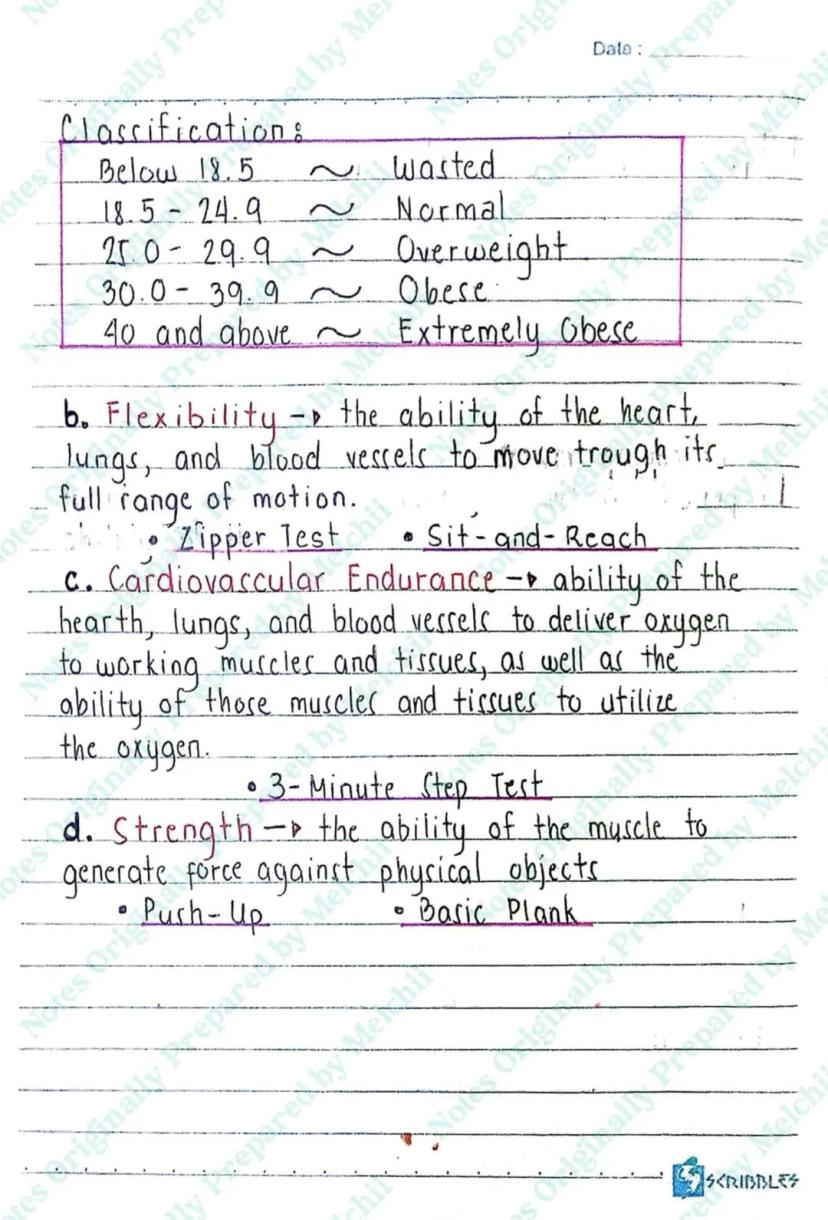 Date :
Classification:
Below 18.5 ~ Wasted
18.5 - 24.9 ~ Normal
25.0 - 29.9 ~ Overweight
30.0 - 39.9 ~ Obese
40 and above ~ Extremely Obese
b. Flexibility → the ability of the heart,
lungs, and blood vessels to move trough its
full range of motion.
• Zipper Test • Sit-and-Reach
c. Cardiovascular Endurance → ability of the
hearth, lungs, and blood vessels to deliver oxygen
to working muscles and tissues, as well as the
ability of those muscles and tissues to utilize
the oxygen.
• 3-Minute Step Test
d. Strength → the ability of the muscle to
generate force against physical objects
• Push-Up • Basic Plank
SCRIBBLES
Notes Originally Prepared by Melchii